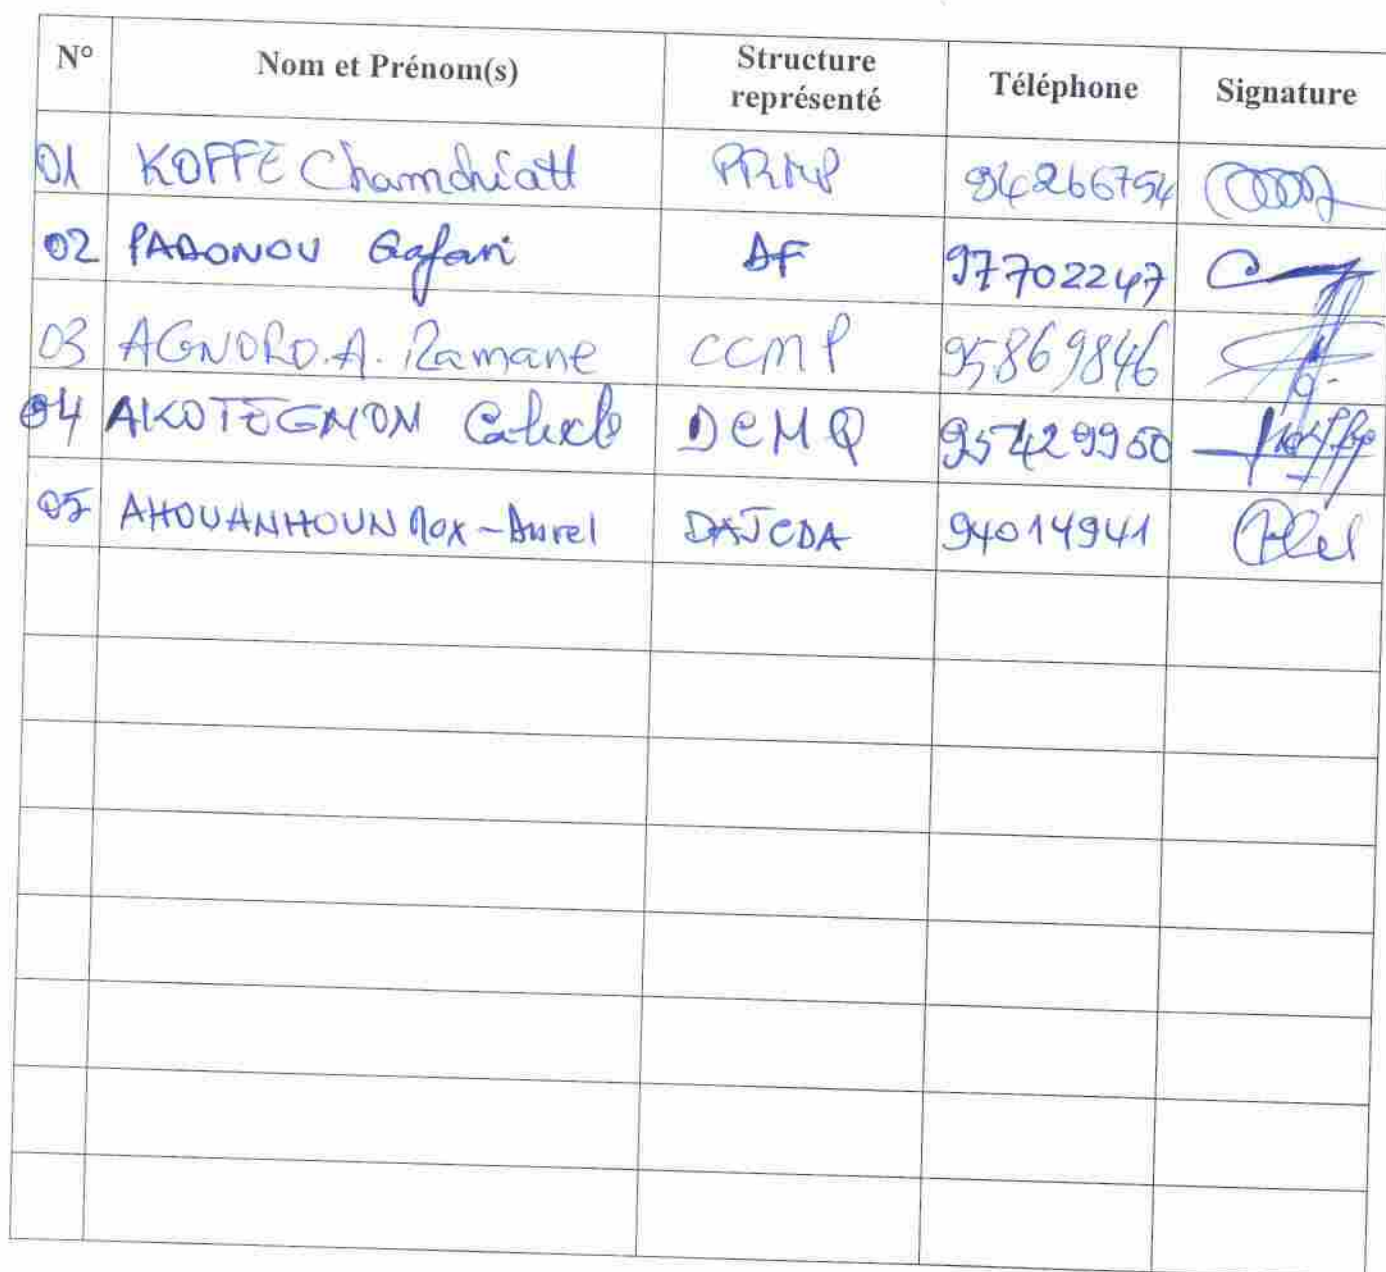 N° Nom et Prénom(s) Structure représenté Téléphone Signature
01 KOFFE Chamdiatt PRMP 94266754
02 PADONOU Gafari DF 97702247
03 AGNORO.A. Ramane CCMP 95869846
04 AKOTEGNON DCMQ 95429950
05 AHOUANHOUN Max-Aurel DAJCDA 94014941